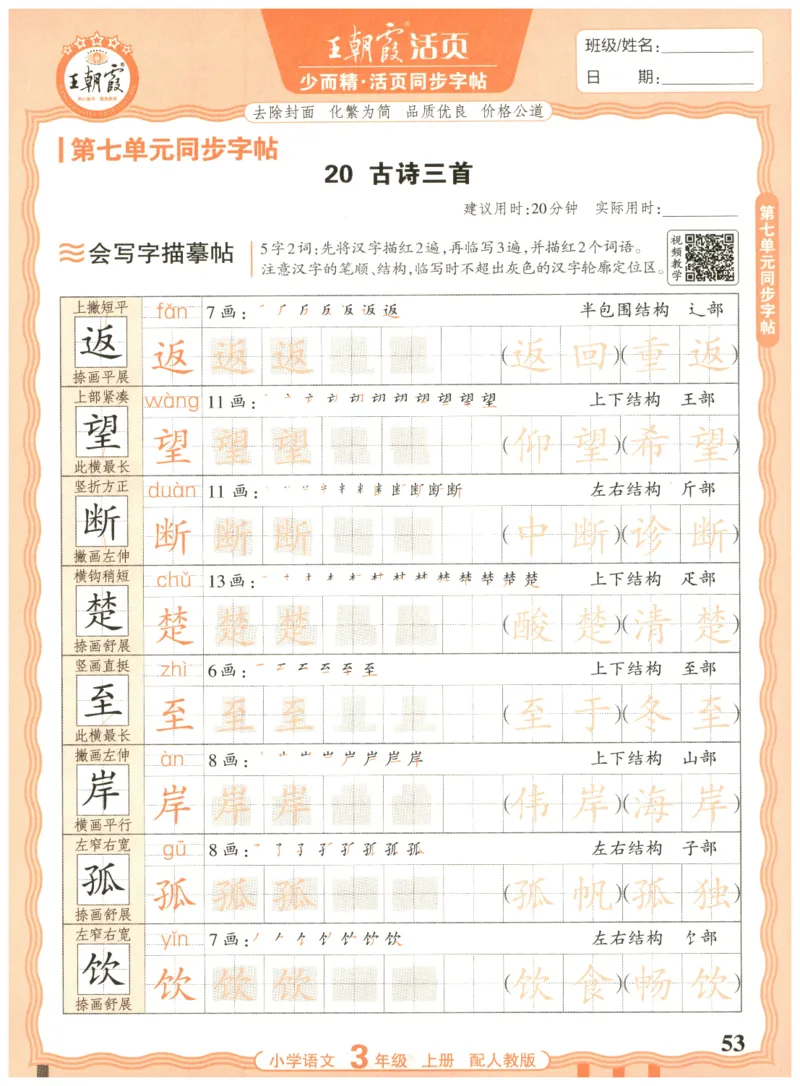 王朝霞
王朝霞®活页
少而精·活页同步字帖
班级/姓名:
日 期:
去除封面 化繁为简 品质优良 价格公道
第七单元同步字帖
20 古诗三首
建议用时:20分钟 实际用时:
会写字描摹帖
5字2词:先将汉字描红2遍,再临写3遍,并描红2个词语。
注意汉字的笔顺、结构,临写时不超出灰色的汉字轮廓定位区。
视频教学
第七单元同步字帖
上撇短平
返
捺画平展
fǎn 7画: 返 半包围结构 辶部
返 返 返 (返回)(重返)
上部紧凑
望
此横最长
wàng 11画: 望 上下结构 王部
望 望 望 (仰望)(希望)
竖折方正
断
撇画左伸
duàn 11画: 断 左右结构 斤部
断 断 断 (中断)(诊断)
横钩稍短
楚
捺画舒展
chǔ 13画: 楚 上下结构 疋部
楚 楚 楚 (酸楚)(清楚)
竖画直挺
至
此横最长
zhì 6画: 至 上下结构 至部
至 至 至 (至于)(冬至)
撇画左伸
岸
横画平行
àn 8画: 岸 上下结构 山部
岸 岸 岸 (伟岸)(海岸)
左窄右宽
孤
捺画舒展
gū 8画: 孤 左右结构 子部
孤 孤 孤 (孤帆)(孤独)
左窄右宽
饮
捺画舒展
yǐn 7画: 饮 左右结构 饣部
饮 饮 饮 (饮食)(畅饮)
小学语文 3年级 上册 配人教版
53